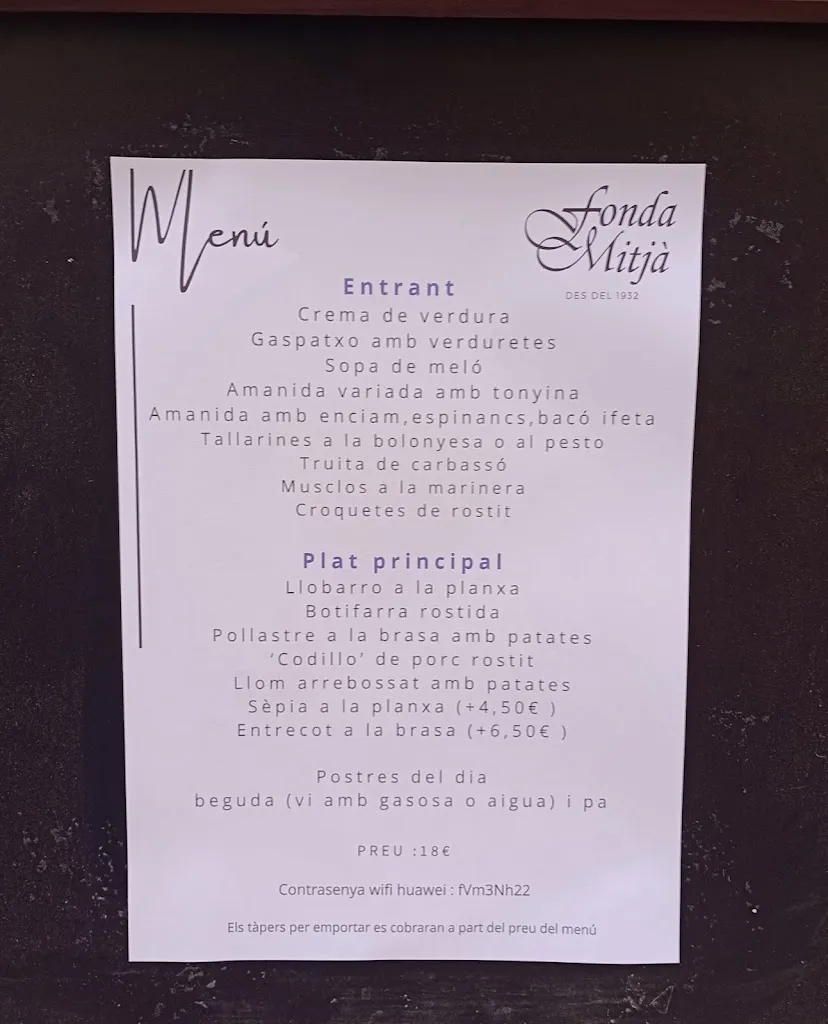 Menú
fonda
Mitjà
DES DEL 1932
Entrant
Crema de verdura
Gaspatxo amb verduretes
Sopa de meló
Amanida variada amb tonyina
Amanida amb enciam,espinancs,bacó ifeta
Tallarines a la bolonyesa o al pesto
Truita de carbassó
Musclos a la marinera
Croquetes de rostit
Plat principal
Llobarro a la planxa
Botifarra rostida
Pollastre a la brasa amb patates
'Codillo' de porc rostit
Llom arrebossat amb patates
Sèpia a la planxa (+4,50€ )
Entrecot a la brasa (+6,50€ )
Postres del dia
beguda (vi amb gasosa o aigua) i pa
PREU :18€
Contrasenya wifi huawei : fVm3Nh22
Els tàpers per emportar es cobraran a part del preu del menú